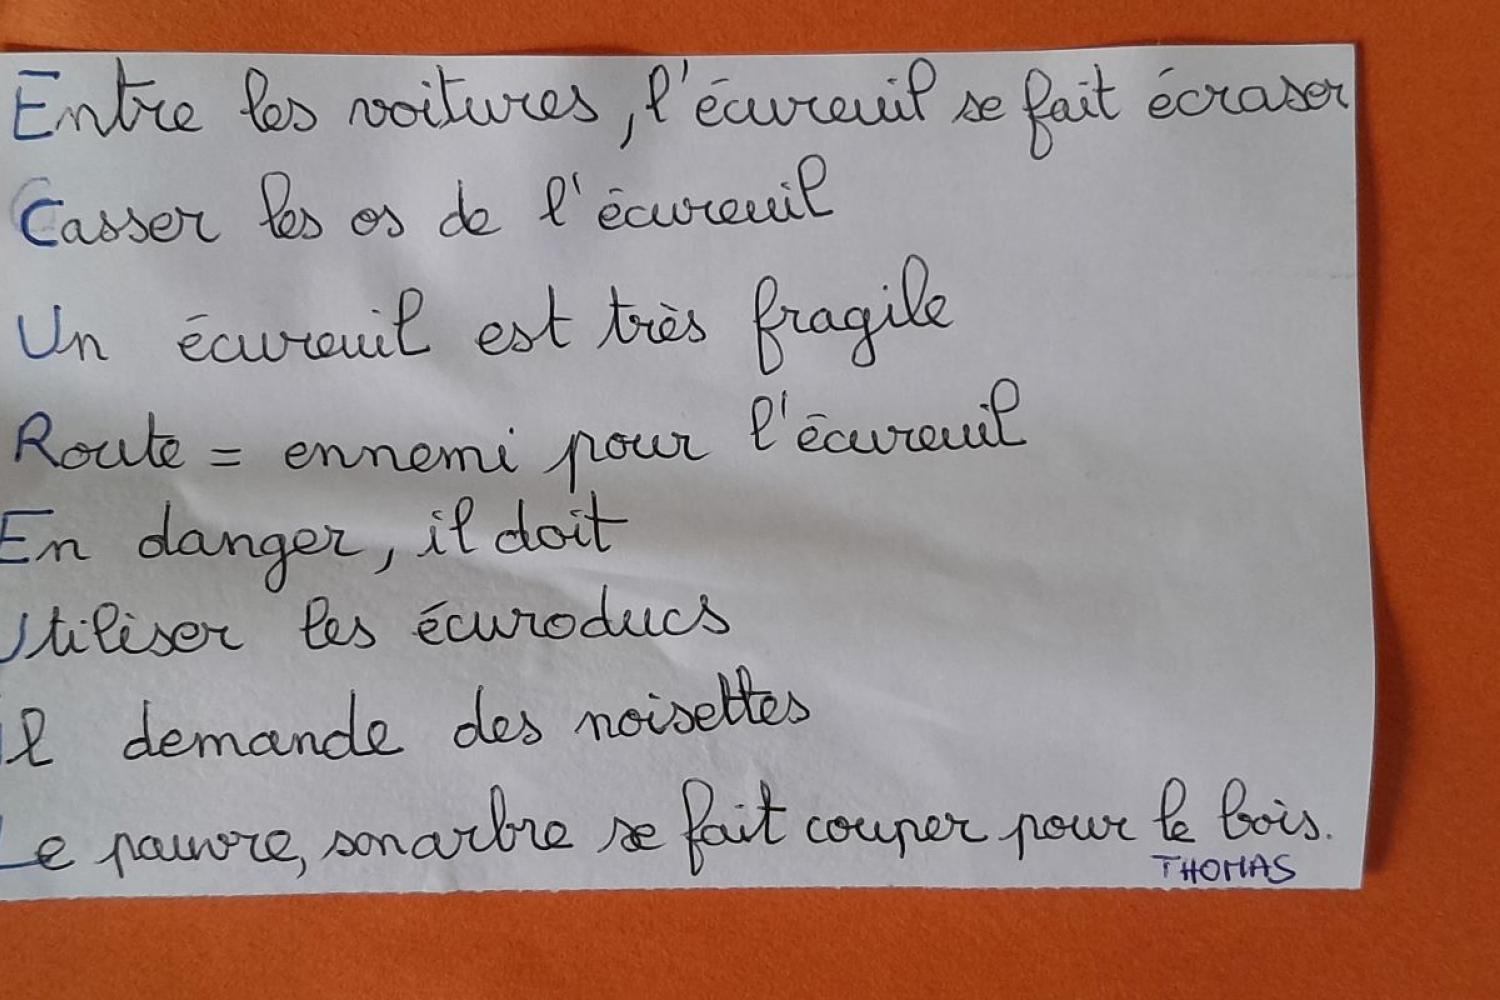 Entre les voitures, l'écureuil se fait écraser
Casser les os de l'écureuil
Un écureuil est très fragile
Route = ennemi pour l'écureuil
En danger, il doit
Utiliser les écuroducs
il demande des noisettes
Le pauvre, son arbre se fait couper pour le bois.
THOMAS